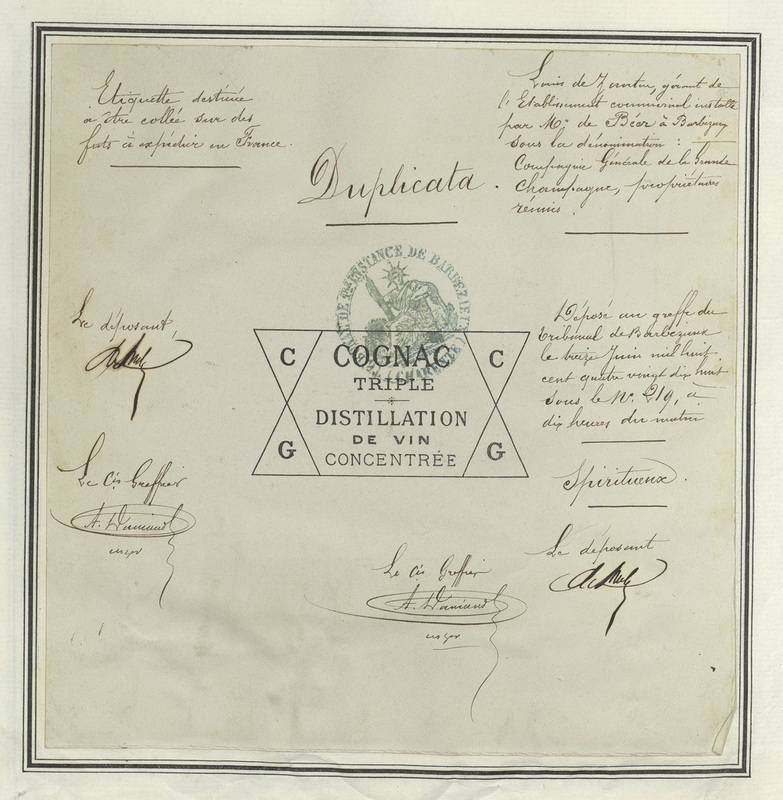 Etiquette destinée
à être collée sur des
fûts à expédier en France.
Duplicata.
Louis de gérant de
l'Etablissement commercial installé
par Mr. de à Barbezieux
sous la dénomination :
Compagnie Générale de la Grande
Champagne, propriétaires
réunis.
Le déposant,
Le Cis Greffier
TRIBUNAL DE 1RE INSTANCE DE BARBEZIEUX
(CHARENTE)
C
COGNAC
C
TRIPLE
DISTILLATION
DE VIN
G
CONCENTRÉE
G
Déposé au greffe du
tribunal de Barbezieux
le treize Juin mil huit
cent quatre vingt dix huit
sous le No. 219, à
dix heures du matin
Spiritueux.
Le déposant
Le Cis Greffier